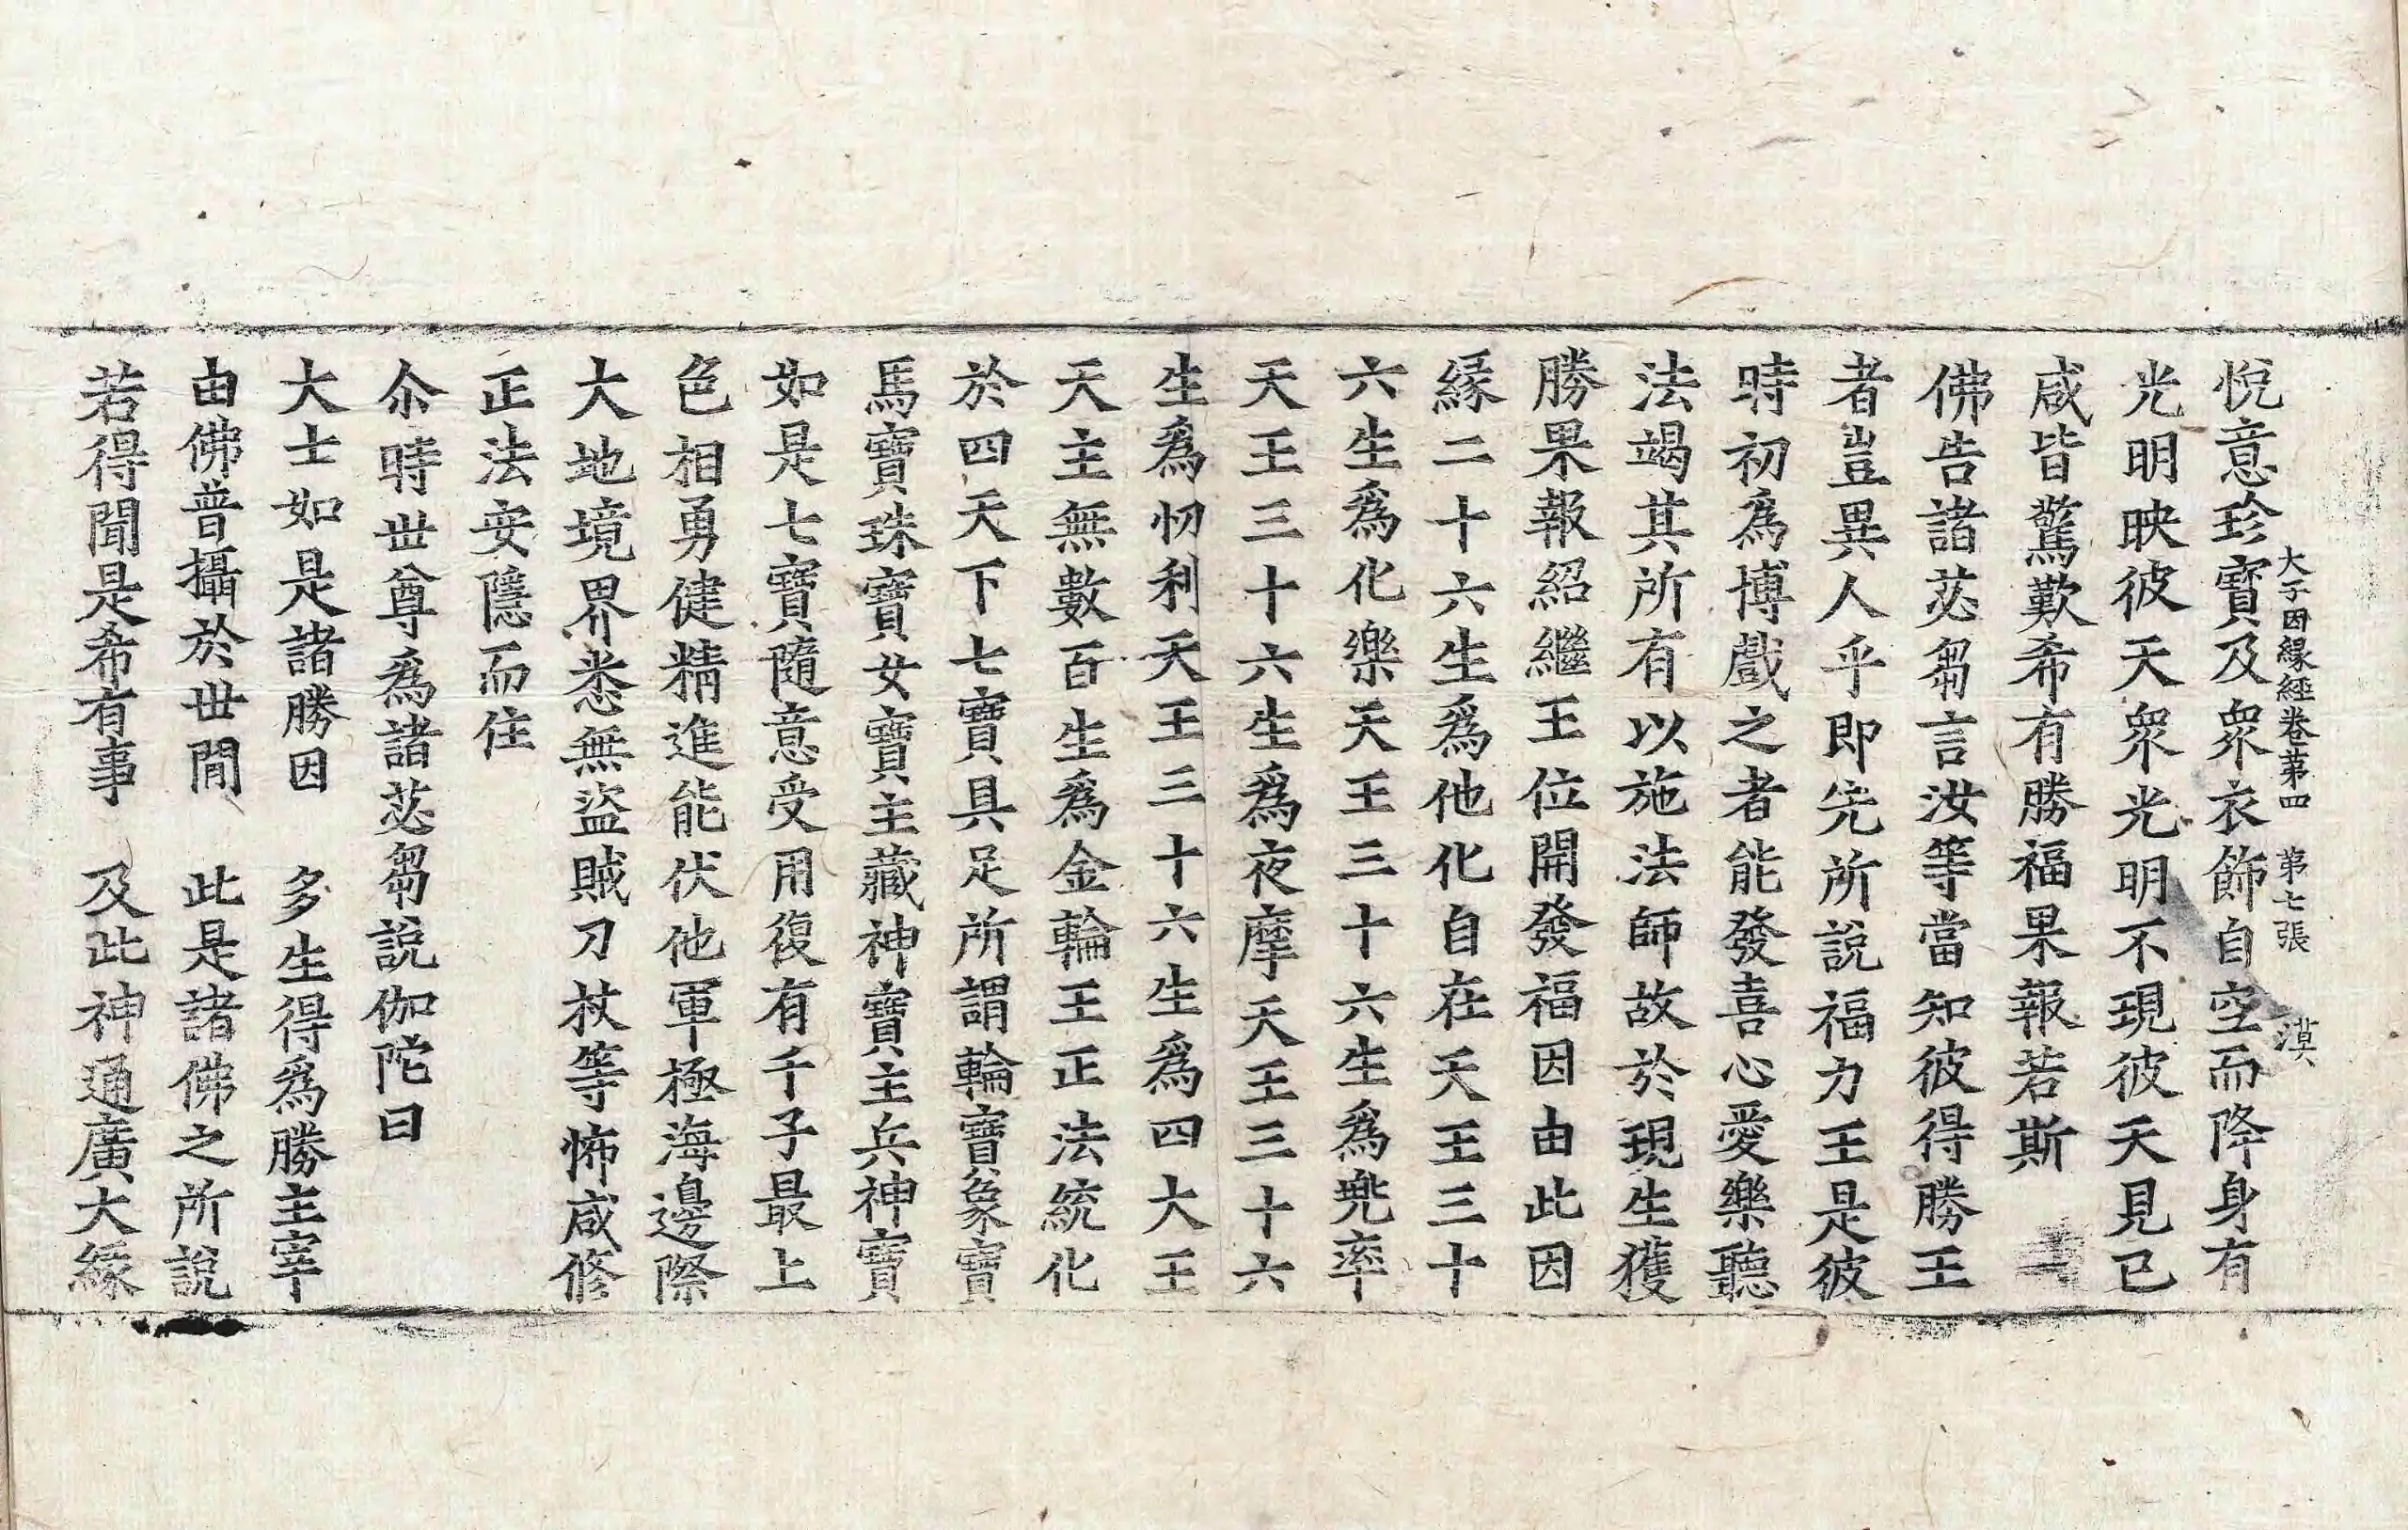 大子因緣經卷苐四　第七張　漠
悅意珍寶及衆衣飾自空而降身有
光明映彼天衆光明不現彼天見已
咸皆驚歎希有勝福果報若斯
佛告諸苾芻言汝等當知彼得勝王
者豈異人乎即先所說福力王是彼
時初爲博戲之者能發喜心愛樂聽
法竭其所有以施法師故於現生獲
勝果報紹繼王位開發福因由此因
緣二十六生爲他化自在天王三十
六生爲化樂天王三十六生爲兠率
天王三十六生爲夜摩天王三十六
生爲忉利天王三十六生爲四大王
天主無數百生爲金輪王正法統化
於四天下七寶具足所謂輪寶象寶
馬寶珠寶女寶主藏神寶主兵神寶
如是七寶隨意受用復有千子最上
色相勇健精進能伏他軍極海邊際
大地境界悉無盜賊刀杖等怖咸修
正法安隱而住
尒時世尊爲諸苾芻說伽陀曰
大士如是諸勝因　多生得爲勝主宰
由佛普攝於世間　此是諸佛之所說
若得聞是希有事　及此神通廣大緣